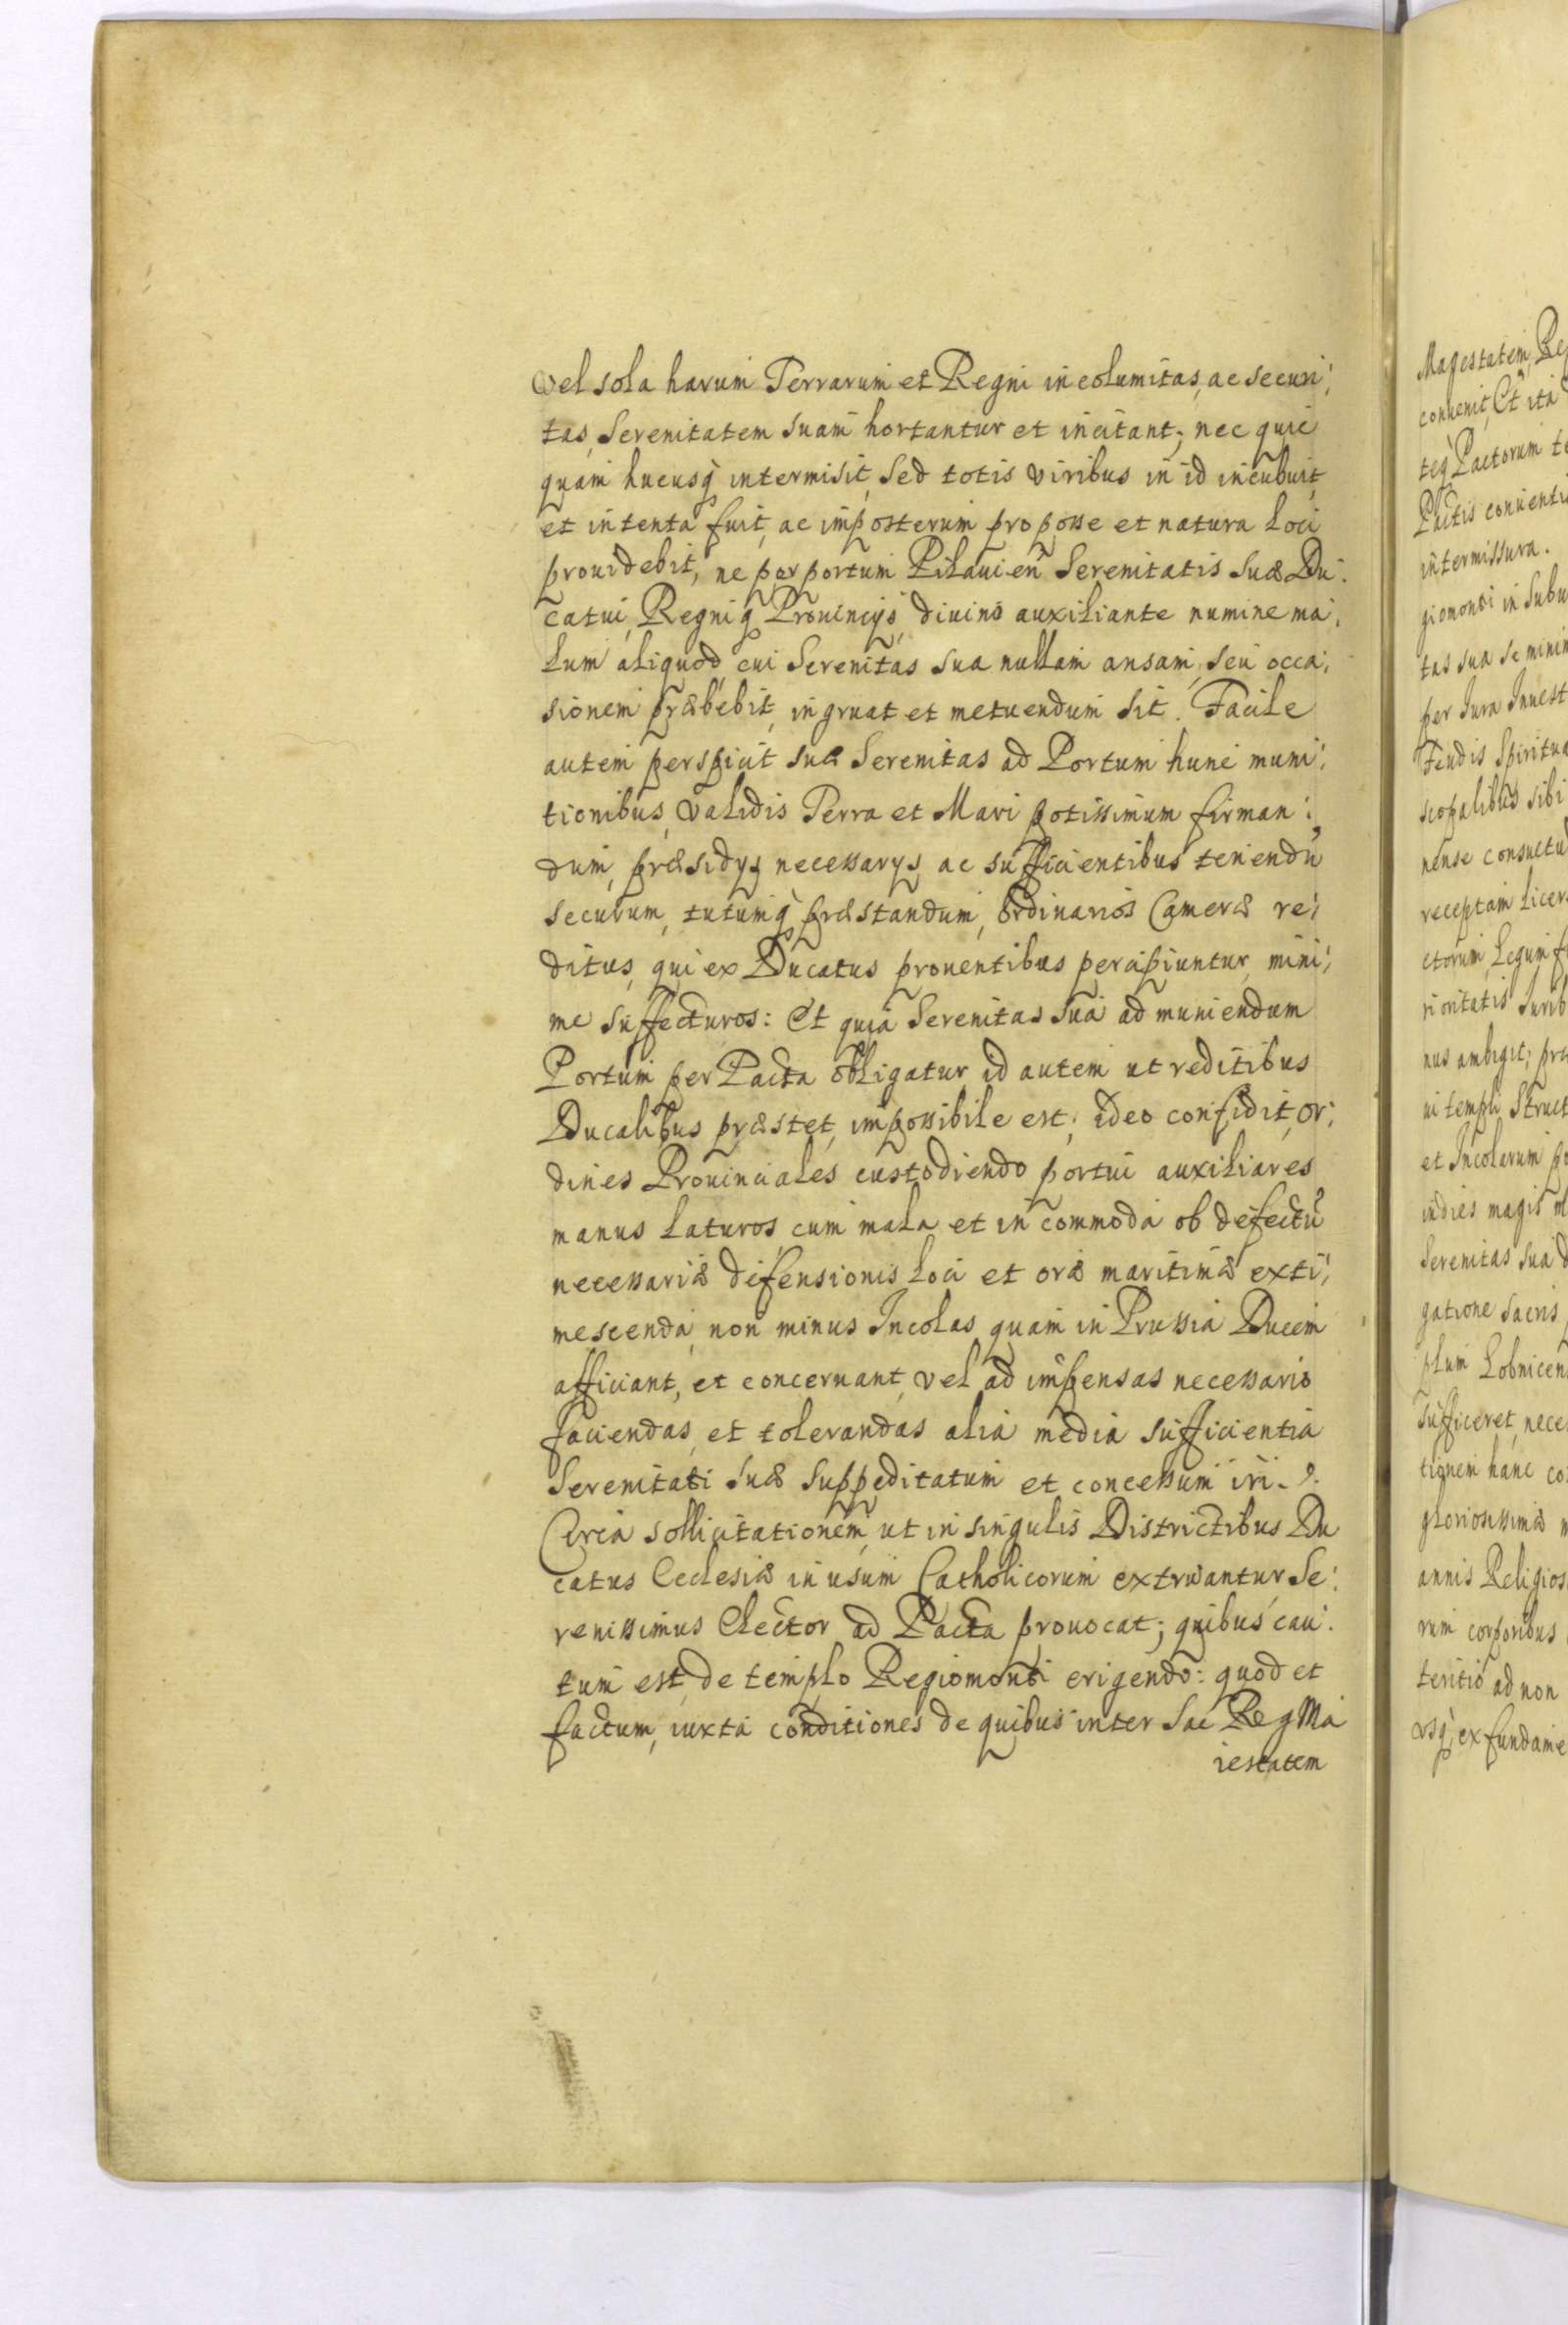 vel sola harum Terrarum et Regni incolumitas, ac securi:
tas, Serenitatem suam hortantur et incitant; nec quic
quam hucusq̀ intermisit, sed totis viribus in id incubuit,
et intenta fuit, ac imposterum pro posse et natura loci
prouidebit, ne per portum Pilauien̄ Serenitatis suæ Du:
catui, Regniq Prouincijs, diuino auxiliante numine ma:
lum aliquod, cui Serenitas sua nullam ansam, seu occa:
sionem præbebit, ingruat et metuendum sit. Facile
autem perspicit sua Serenitas ad Portum hunc muni:
tionibus, validis Terra et Mari potissimum firman:
dum, præsidys necessarys, ac sufficientibus tenendū
securum, tutumq̀ præstandum, ordinarios Cameræ re:
ditus, qui ex Ducatus prouentibus percipiuntur, mini:
me suffecturos: Et quia Serenitas sua ad muniendum
Portum per Pacta obligatur, id autem ut reditibus
Ducalibus præstet, impossibile est; ideo confidit, or:
dines Prouinciales custodiendo portui auxiliares
manus laturos, cum mala et incommoda ob defectū
necessariæ defensionis loci et oræ maritimæ exti:
mescenda, non minus Incolas, quam in Prussia Ducem
afficiant, et concernant, vel ad impensas necessario
faciendas, et tolerandas alia media sufficientia
Serenitati suæ suppeditatum et concessum iri.
Circa sollicitationem, ut in singulis Districtibus Du
catus Ecclesiæ in usum Catholicorum extruantur, Se:
renissimus Elector ad Pacta prouocat; quibus cau:
tum est, de templo Regiomonti erigendo: quod et
factum, iuxta conditiones de quibus inter Sac Reg Ma
iestatem
Magestatem, Re
conuenit, Et ita
teq̀ Pactorum te
Pactis conuenti
intermissura.
giomonti in subu
tas sua se minim
per Iura Inuest
Feudis Spiritua
scopalibus sibi
nense consuetu
receptam licer
ctorum, Legum f
rioritatis Iurib
nus ambigit; pra
ui templi struct
et Incolarum po
indies magis m
Serenitas sua d
gatione sacris
plum Lobnicen
sufficeret, nece
tionem hanc co
gloriosissimæ m
annis Religios
rum corporibus
teritio ad non
vsq̀ ex fundame